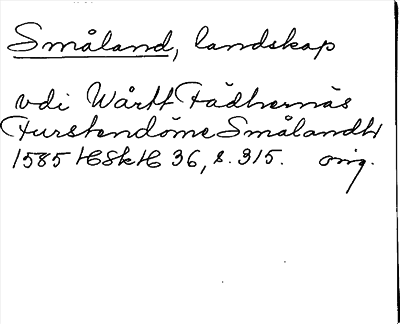 Småland, landskap
vdi Wårtt Fädhernäs
Furstendöme Smålandh
1585 HSkH 36, s. 315. orig.